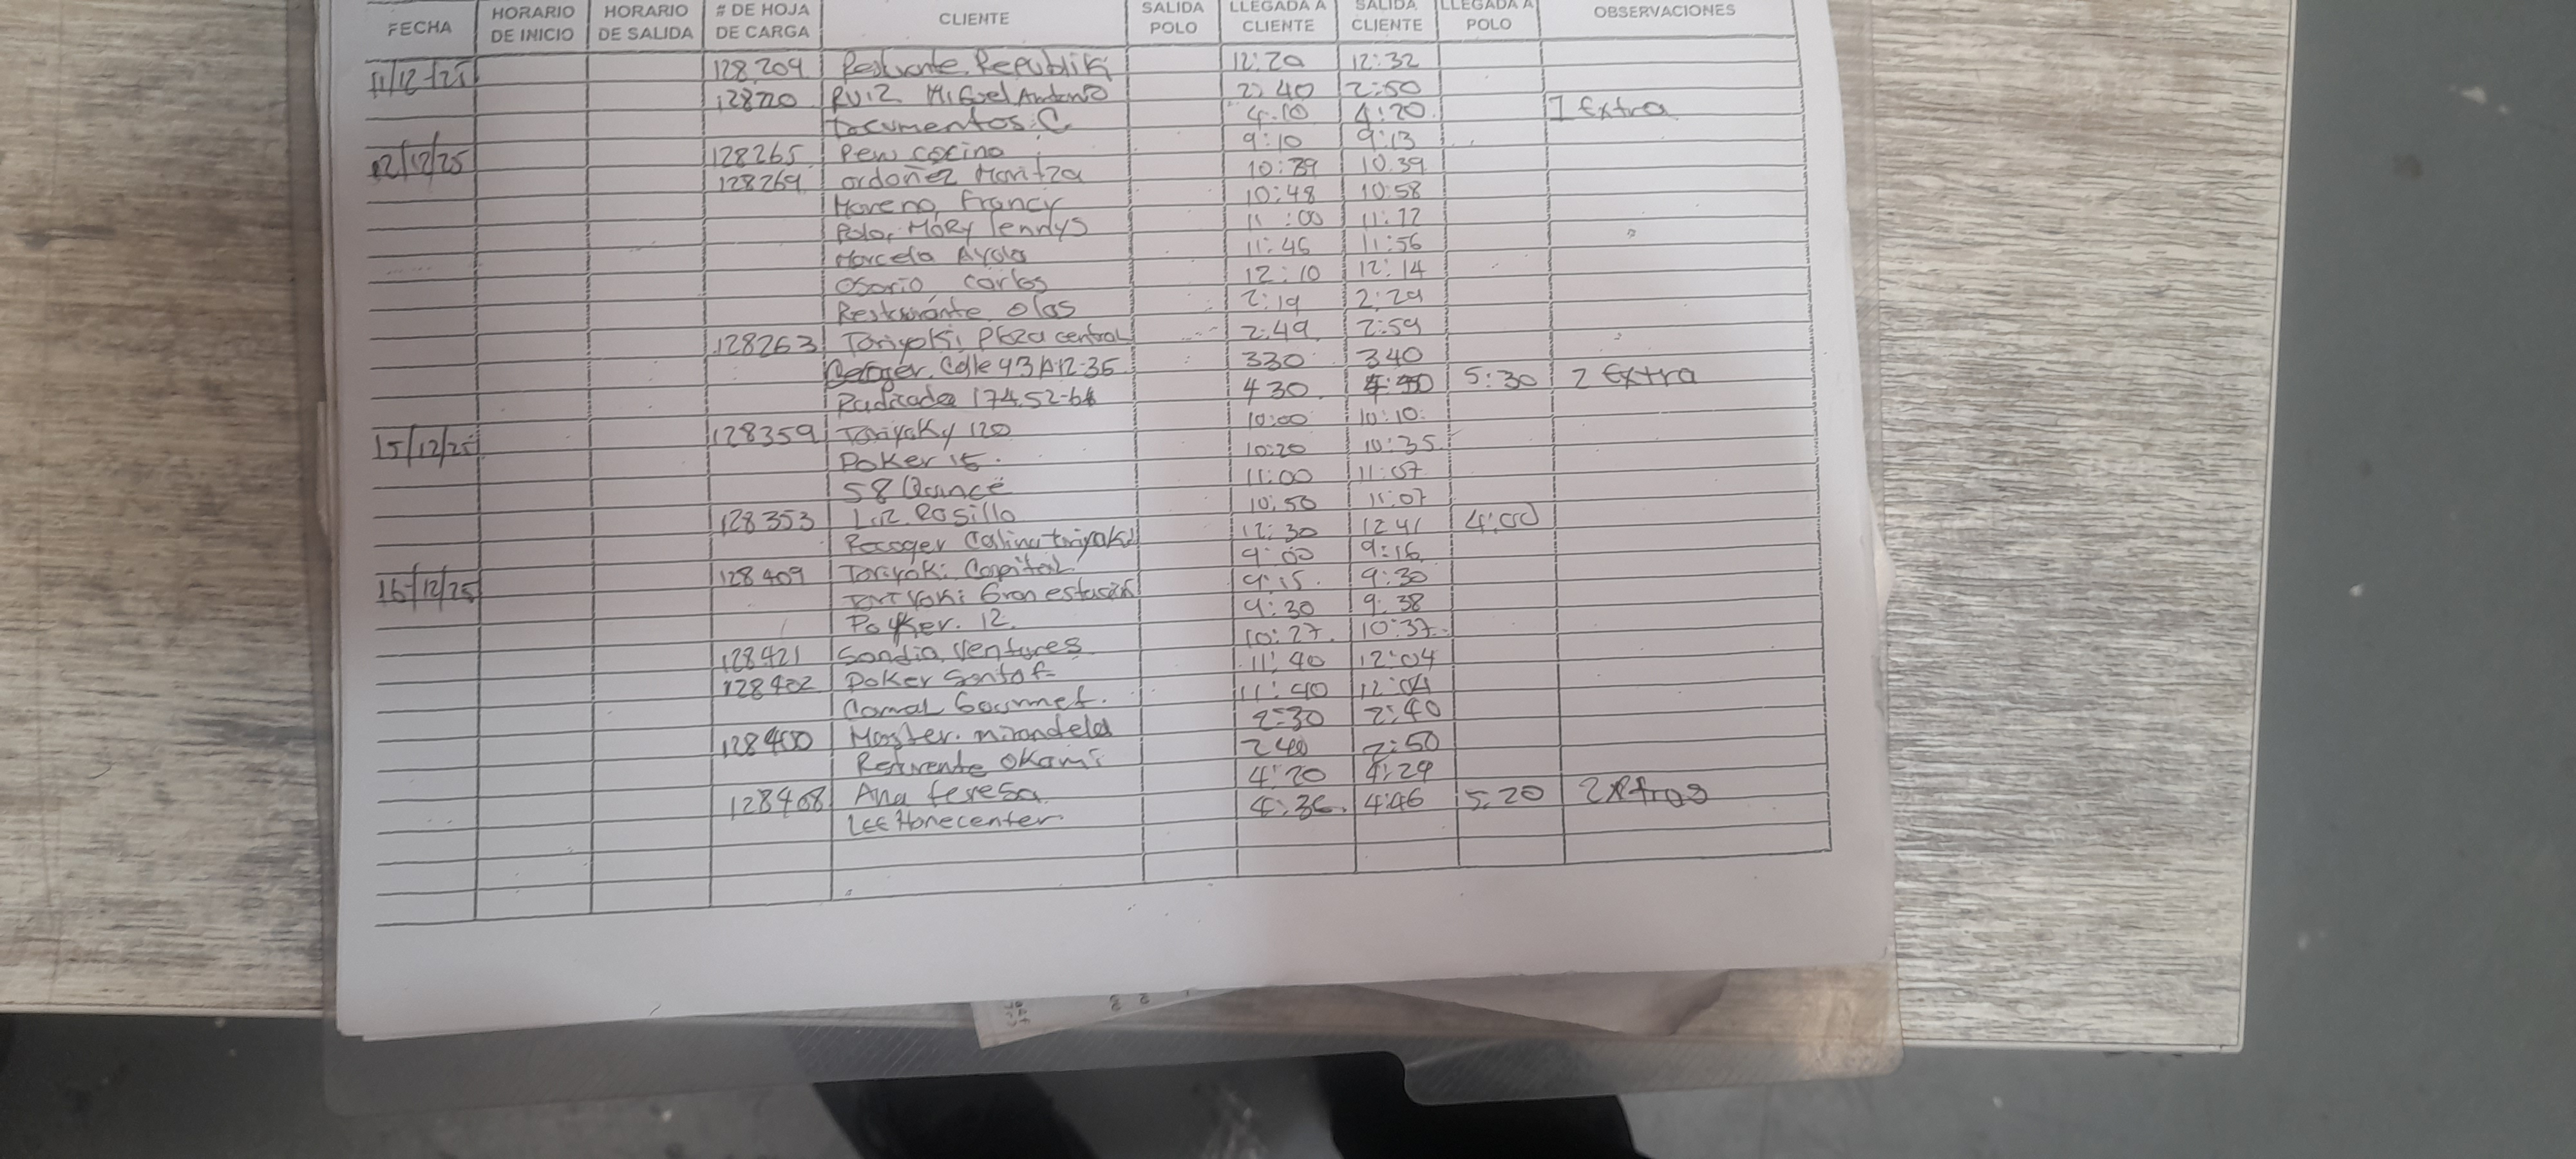 FECHA HORARIO DE INICIO HORARIO DE SALIDA # DE HOJA DE CARGA CLIENTE SALIDA POLO LLEGADA A CLIENTE SALIDA CLIENTE LLEGADA A POLO OBSERVACIONES
11/12/25 128209 Republik 12:20 12:32
RUIZ Miguel Antonio 2:40 2:50
Documentos C 4:10 4:20 1 Extra
12/12/25 128265 Pew cocino 9:10 9:13
128269 ordoñez Maritza 10:39
Moreno, Francy 10:48 10:58
Polo, MORY Iennys 11:00
Marcela Ayala 11:46 11:56
Osorio carlos 12:10 12:14
Restaurante Olas 2:19 2:29
128263 Toriyoki Plaza central 2:49 2:59
Calle 93A 12-35 330 340
174.52- 430 5:30 2 Extra
15/12/25 128359 Toriyoky 120 10:00 10:10
Poker 15. 10:20 10:35
58 Quince 11:00 11:07
128353 Rosillo 10:50 11:07
Recoger 12:30 1241 4:00
16/12/25 128409 Toriyoki Capital 9:00 9:16
Gran estación 9:15 9:30
12. 9:30 9:38
128421 Sandia Ventures 10:27 10:37
128402 Poker Santaf 11:40 12:04
Comal Gourmet. 11:40 12:04
128400 Master. mirandela 2:30 2:40
Okami 240 2:50
128408 Ana teresa 4:20 4:29
LEE Homecenter 4:36 4:46 5:20